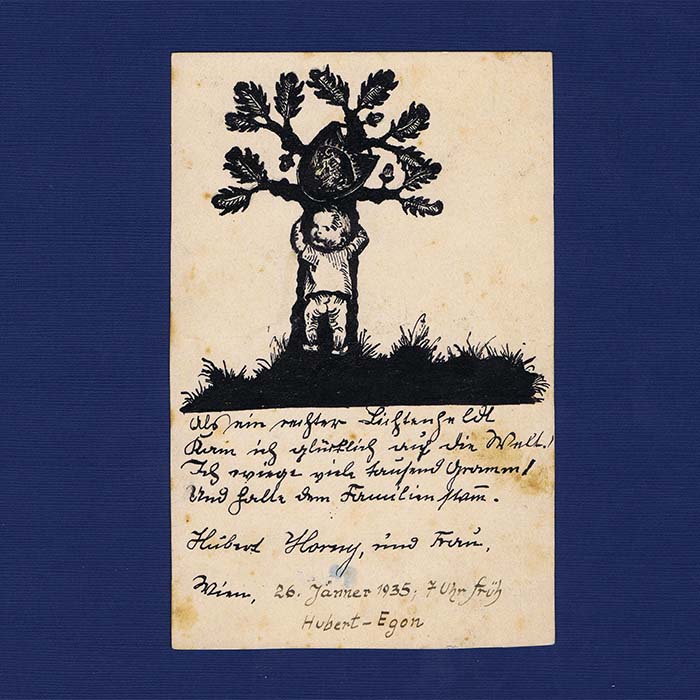 Als ein rechter Lichtenheldt
Kam ich glücklich auf die Welt!
Ich wiege viele tausend Gramm!
Und halte den Familienstamm.
Hubert Horny, und Frau.
Wien, 26. Jänner 1935; 7 Uhr früh
Hubert-Egon